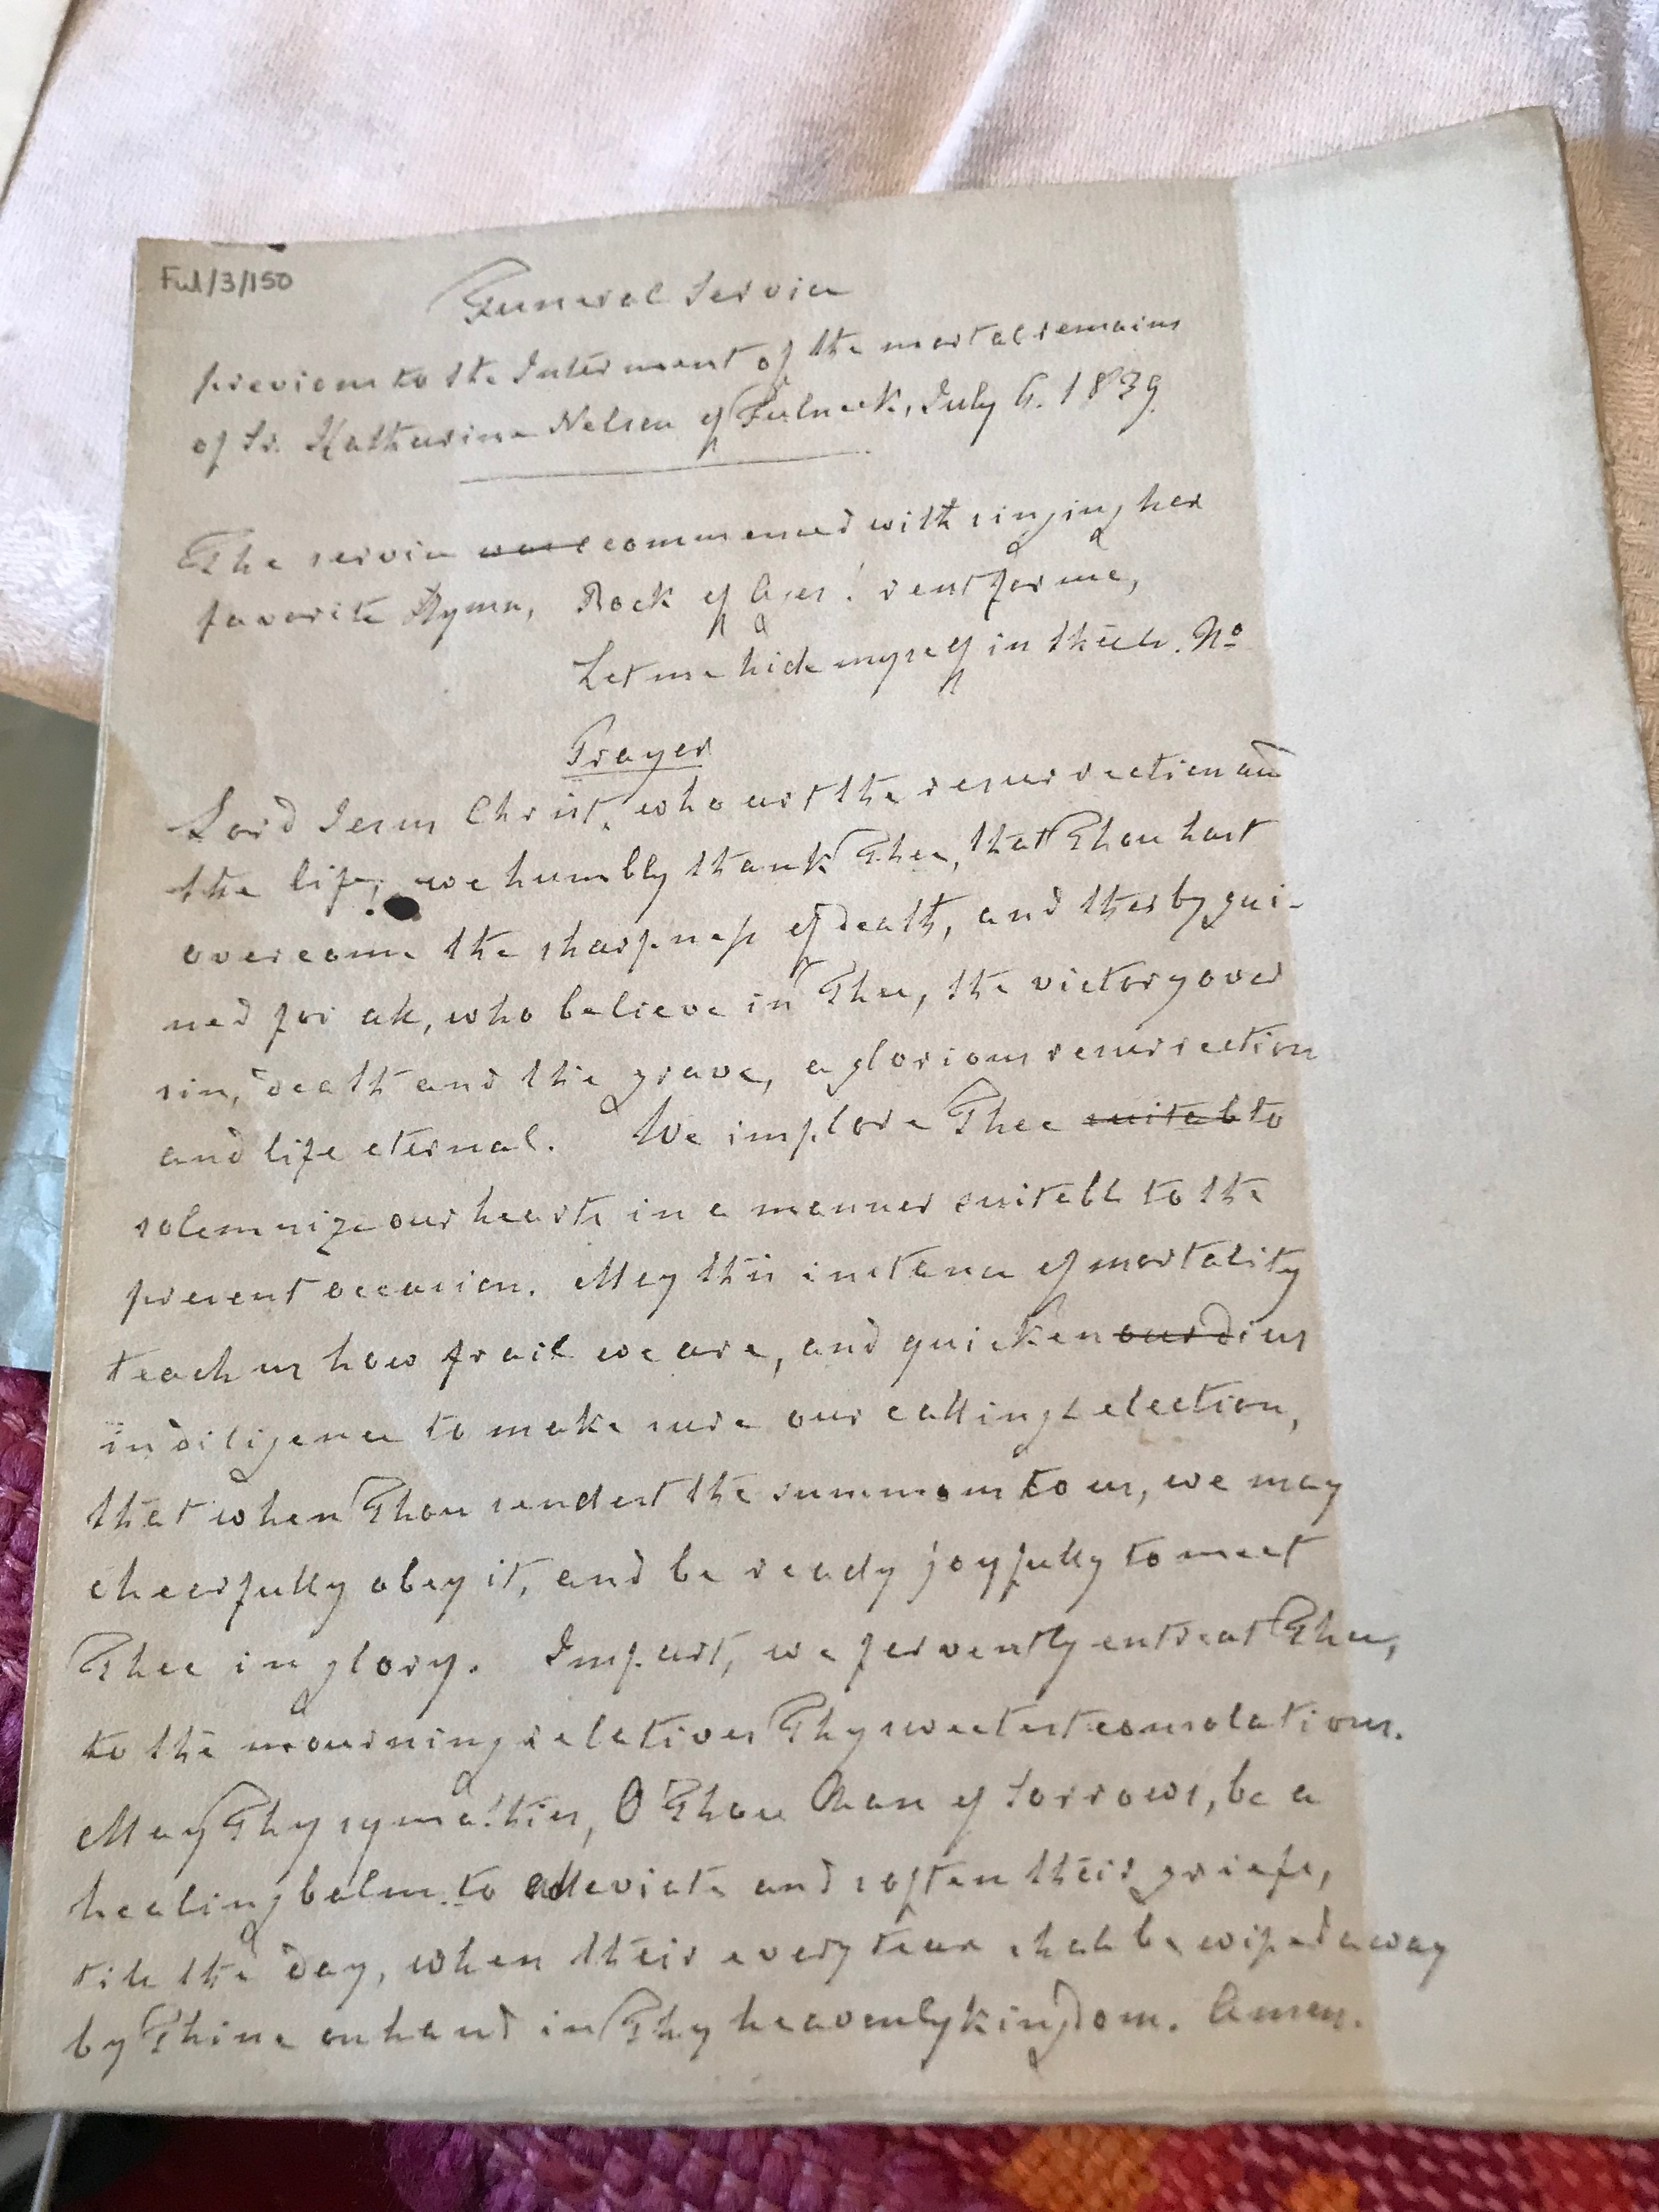 Ful/3/150
Funeral Service
previous to the Interment of the mortal remains
of Sr. Katharine Nelsen of Fulneck, July 6. 1839.
The service were commenced with singing her
favorite Hymn, Rock of Ages! rent for me,
Let me hide myself in thee. No
Prayer
Lord Jesus Christ, who art the resurrection and
the life, we humbly thank Thee, that Thou hast
overcome the sharpness of death, and therby gai-
ned for all, who believe in Thee, the victory over
sin, death and the grave, a glorious resurrection
and life eternal. We implore Thee suitab to
solemnize our hearts in a manner suitabl to the
present occasion. May this instance of mortality
teach us how frail we are, and quicken our di us
in diligence to make sure our calling & election,
that when Thou sendest the summons to us, we may
cheerfully obey it, and be ready joyfully to meet
Thee in glory. Impart, we fervently entreat Thee,
to the mourning relatives Thy sweetest consolations.
May Thy symathies, O Thou Man of Sorrows, be a
healing balm to alleviate and soften their griefs,
till the day, when their every tear shall be wiped away
by Thine on hand in Thy heavenly kingdom. Amen.